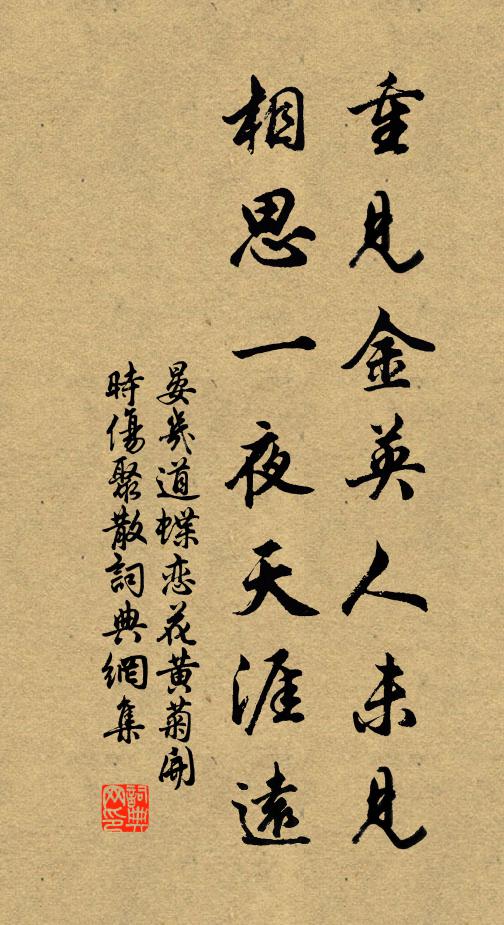 重見金英人未見
相思一夜天涯遠
晏幾道蝶恋花黄菊開
時傷聚散詞典網集
詞典
网印